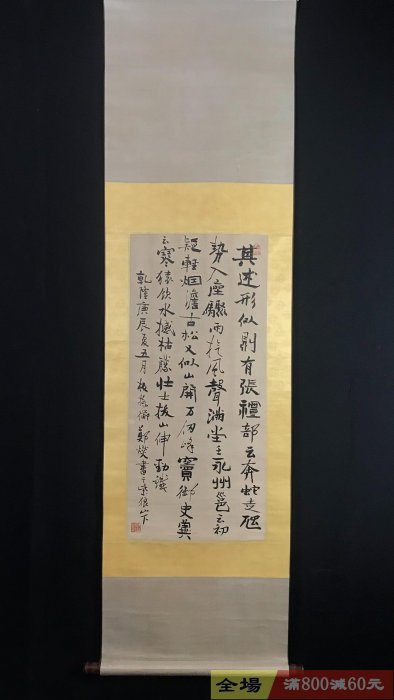 其述形似則有張禮部云奔蛇走虺
勢入座驟雨旋風聲滿堂王永州邕云初
疑輕烟澹古松又似山開万仞峰竇御史冀
云寒猿飲水撼枯藤壯士拔山伸勁鐵
乾隆庚辰夏五月板橋鄭燮書狼山下
全場 滿800減60元